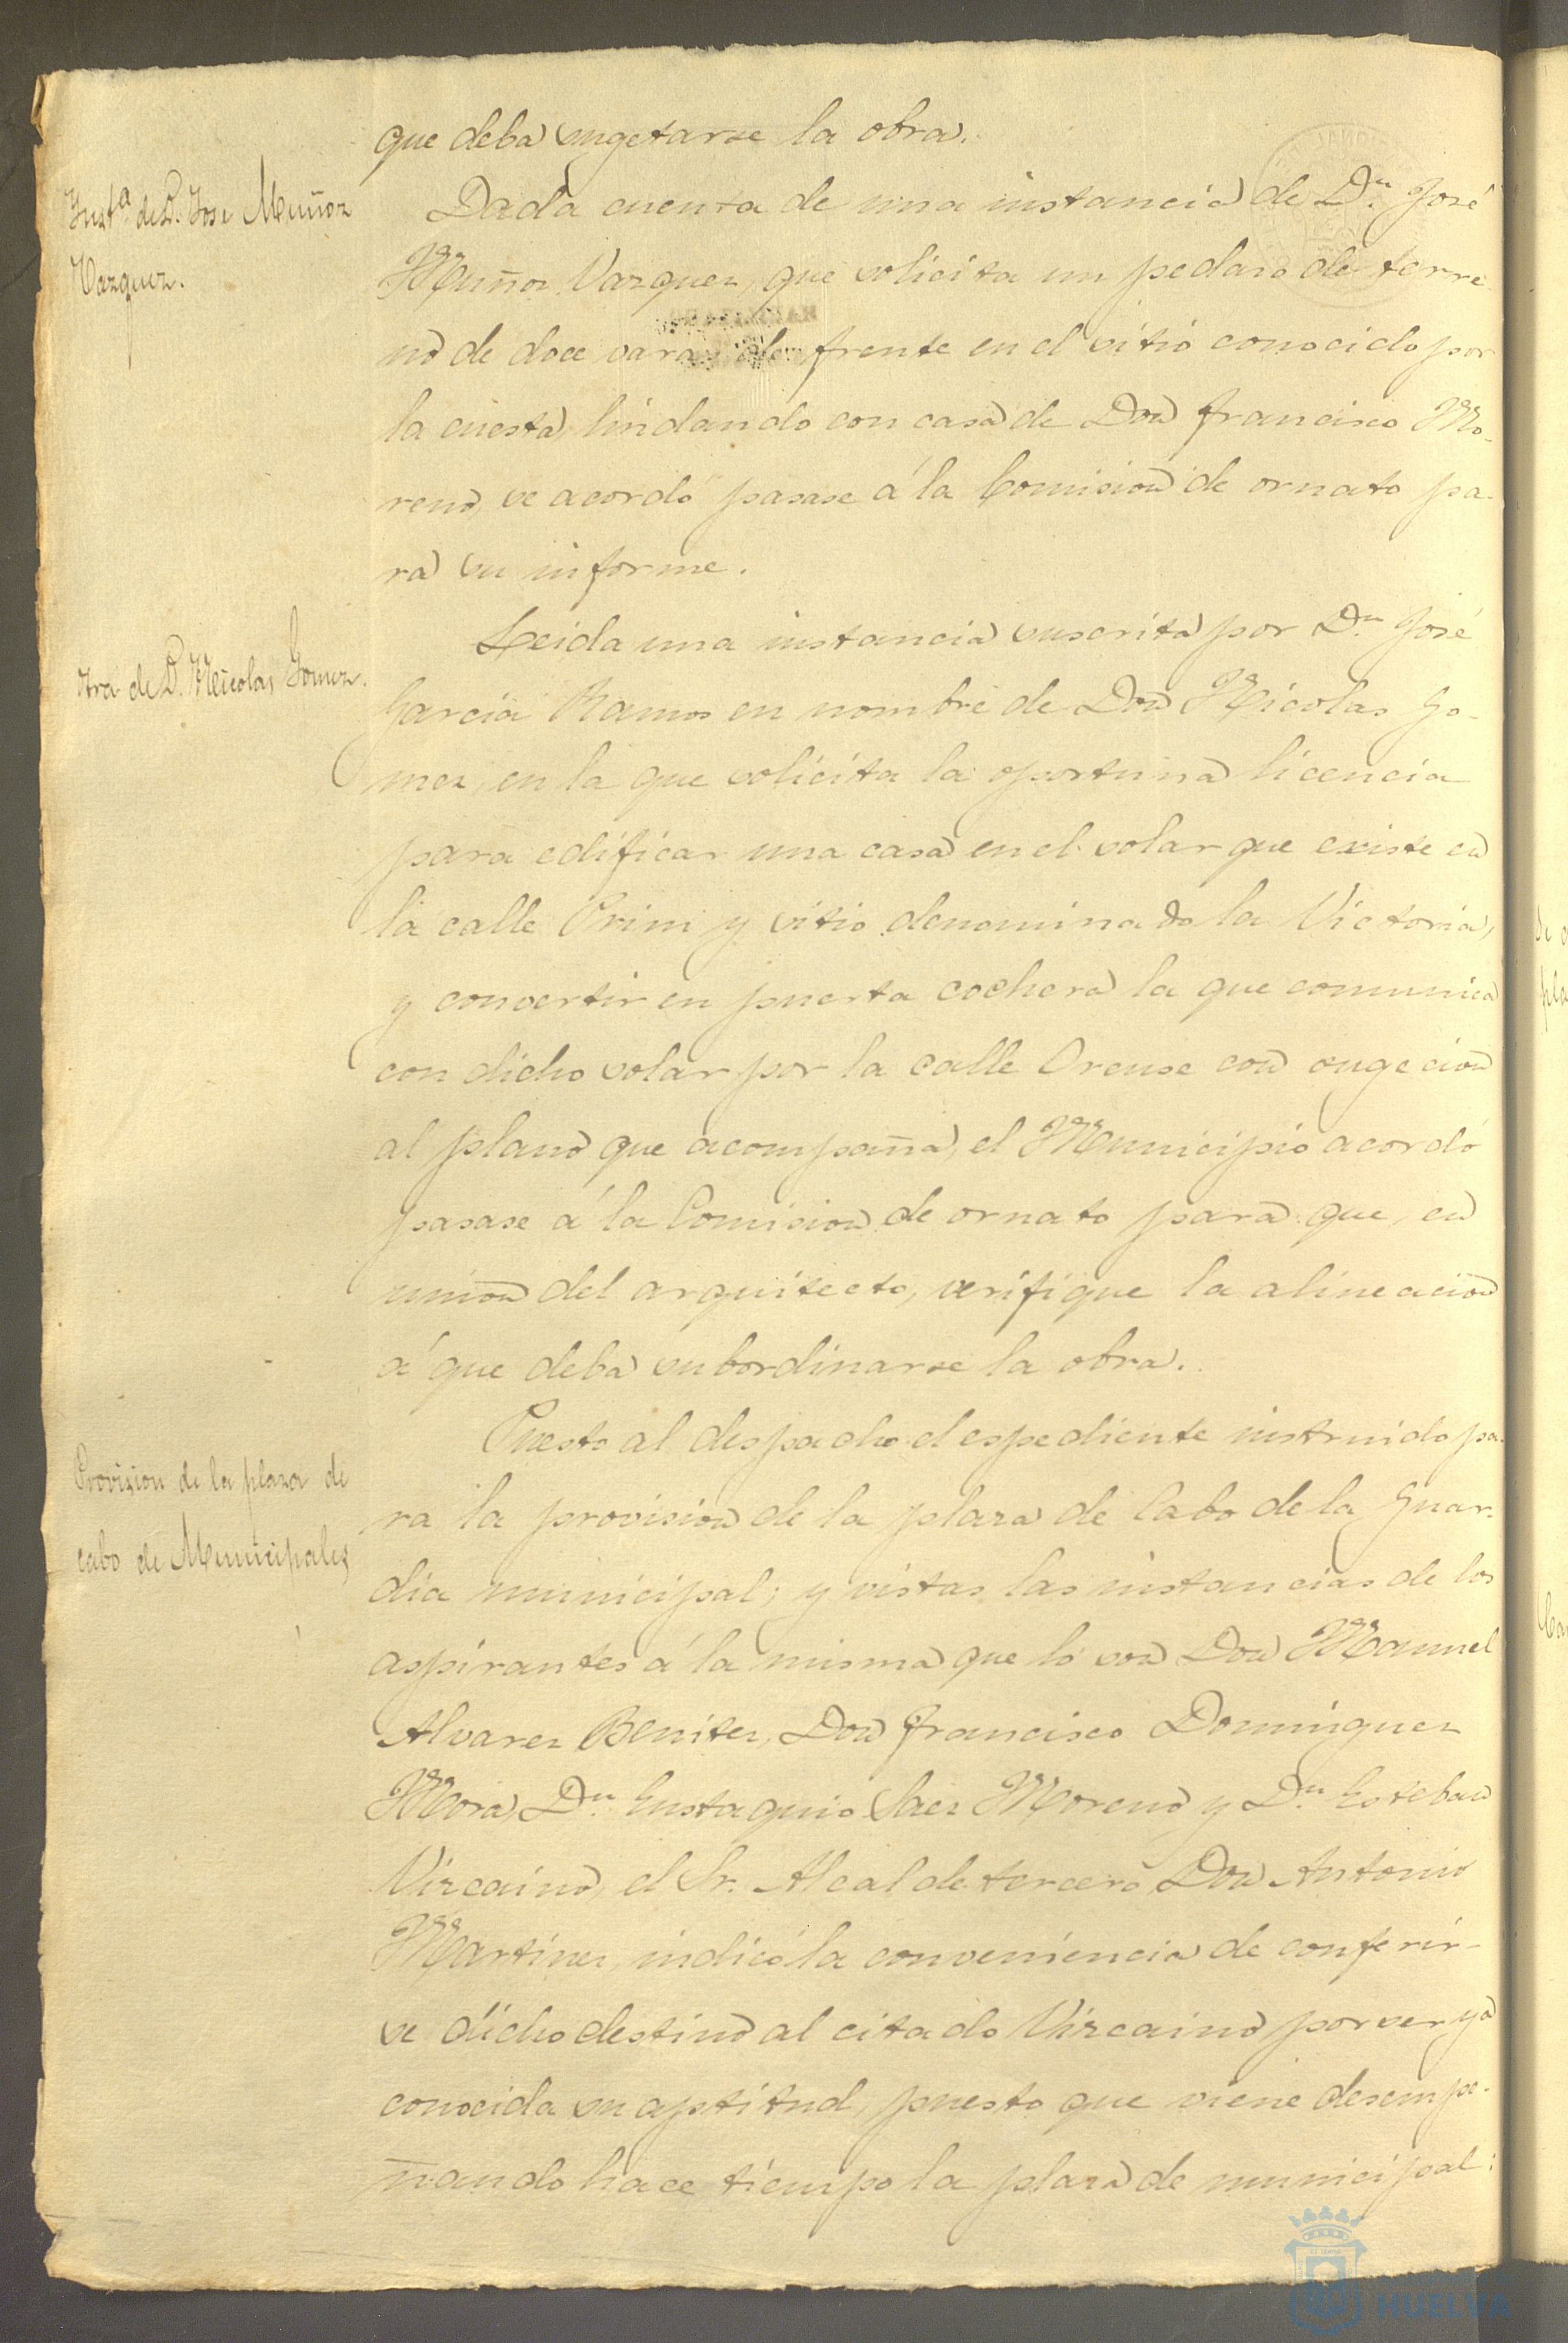 que deba sugetarse la obra.
Inst.ª de D. Jose Muñoz
Vazquez.
Dada cuenta de una instancia de D.n José
Muñoz Vazquez, que solicita un pedazo de terre
no de doce varas de frente en el sitio conocido por
la cuesta, lindando con casa de Don Francisco Mo-
reno, se acordó pasase á la Comision de ornato pa-
ra su informe.
Otra de D. Nicolas Gomez.
Leida una instancia suscrita por D.n José
Garcia Ramos en nombre de Don Nicolas Go-
mez, en la que solicita la oportuna licencia
para edificar una casa en el solar que existe en
la calle Prim y sitio denominado la Victoria,
y convertir en puerta cochera la que comunica
con dicho solar por la calle Orense con sugecion
al plano que acompaña, el Municipio acordó
pasase á la Comision de ornato para que, en
union del arquitecto, verifique la alineacion
á que deba subordinarse la obra.
Provision de la plaza de
cabo de Municipales
Puesto al despacho el espediente instruido pa-
ra la provision de la plaza de Cabo de la Guar-
dia municipal; y vistas las instancias de los
aspirantes á la misma que lo son Don Manuel
Alvarez Benitez, Don Francisco Dominguez
Mora, D.n Eustaquio Saez Moreno y D.n Esteban
Vizcaino, el Sr. Alcalde tercero Don Antonio
Martinez, indicó la conveniencia de conferir-
se dicho destino al citado Vizcaino por ser ya
conocida su aptitud, puesto que viene desempe-
ñando hace tiempo la plaza de municipal:
HUELVA